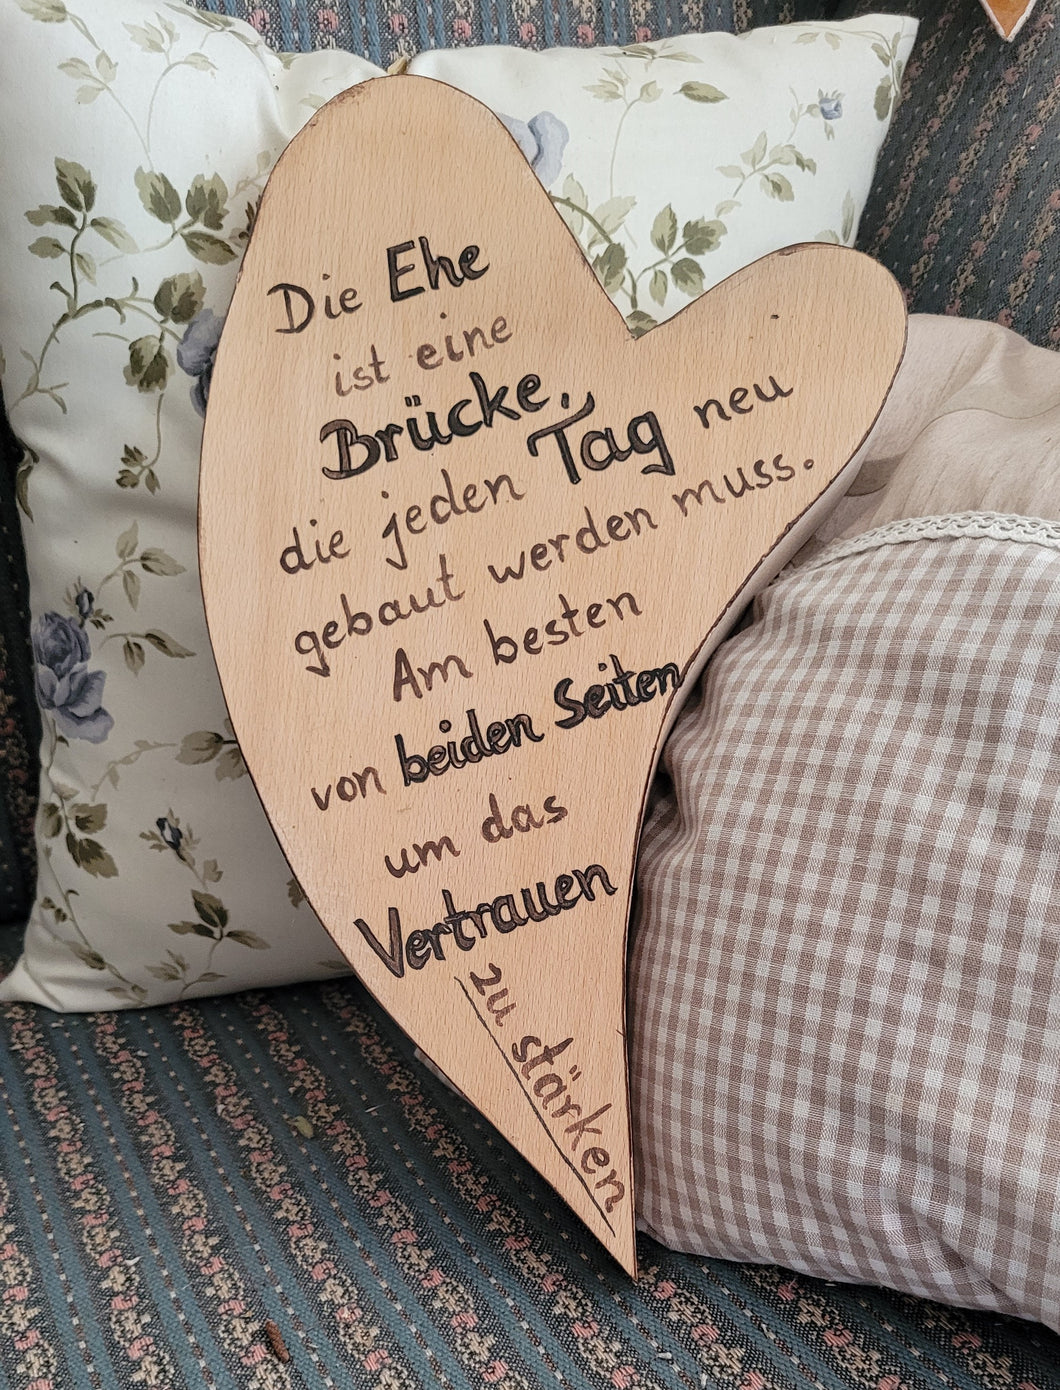 Die Ehe
ist eine
Brücke,
die jeden Tag neu
gebaut werden muss.
Am besten
von beiden Seiten
um das
Vertrauen
zu stärken